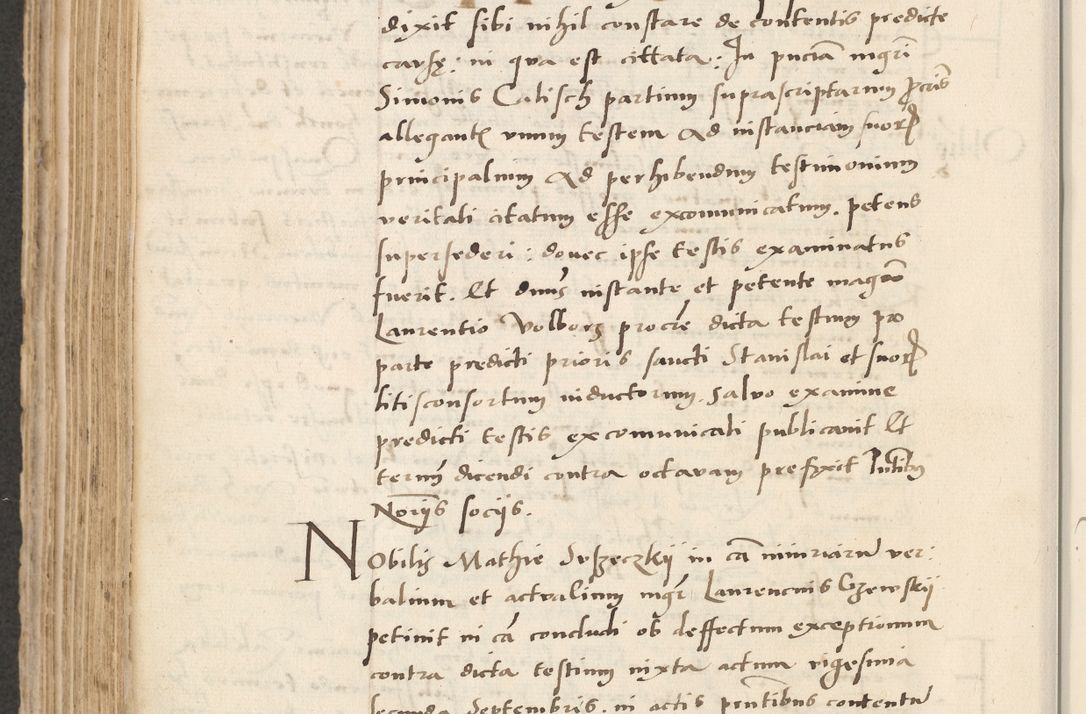 dixit sibi nihil constare de contentis predicte
causę: in qua est cittata: In pnciā mgri
Simonis Calisch partium suprascriptarum pcris
allegantꝭ unum testem ad instanciam suorꝝ
principalium ad perhibendum testimonium
veritati citatum esse excomunicatum. petens
supersederi: donec ipse testis examinatus
fuerit. Et dnus instante et petente magrō
Laurentio Volborz procre dicta testium pro
parte predicti prioris sancti Stanislai et suorꝝ
litisconsortum inductorum. salvo examine
predicti testis excomunicati publicavit Et
termū dicendi contra octavam prefixit
Noriis sociis.
Nobilis Mathie in cā iniuriarū ver:
balium et actualium mgr Laurencius
petiuit in cā concludi ob deffectum exceptionum
contra dicta testium iuxta actum vigesima
secunda Septembris. in actis pntibus contentū